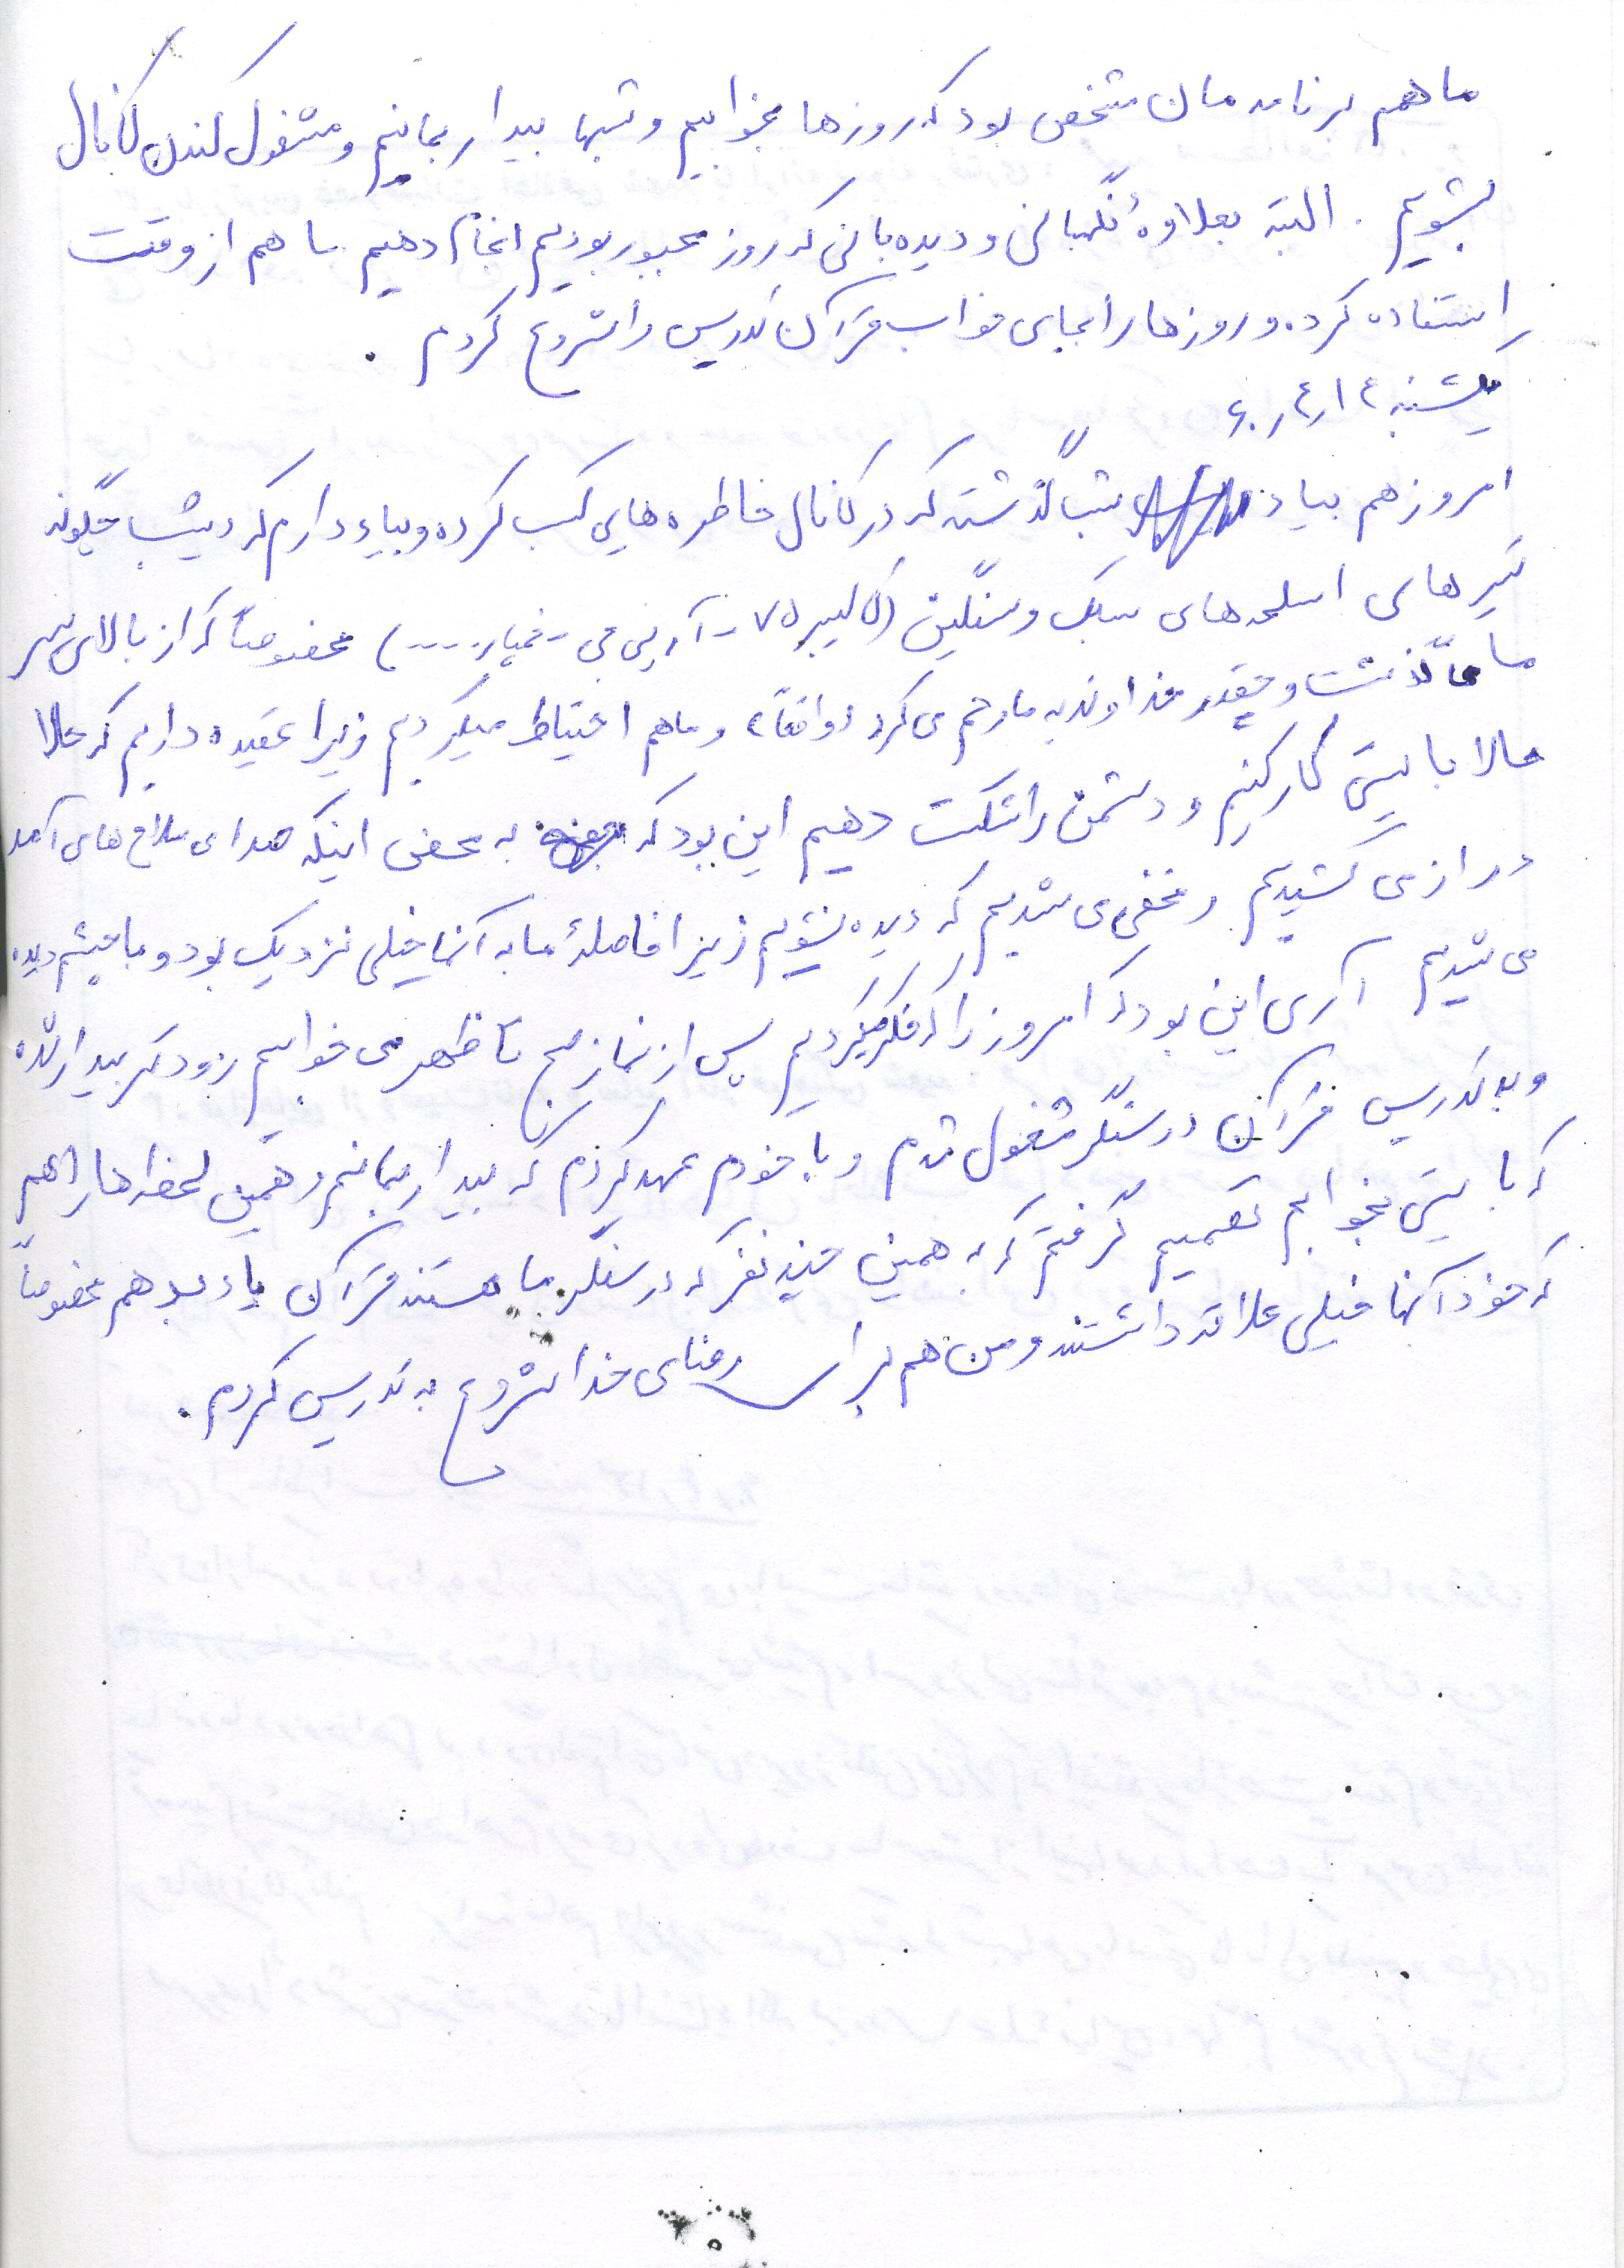 ما هم برنامه مان مشخص بود که روزها بخوابیم و شبها بیدار بمانیم و مشغول کندن کانال
بشویم . البته بعلاوهٔ نگهبانی و دیده بانی که روز مجبور بودیم انجام دهیم ما هم از وقت
استفاده کرده و روزها را بجای خواب قرآن تدریس را شروع کردم .
یکشنبه ۶۰/۴/۱۴
امروز هم بیاد شب گذشته که در کانال خاطره هایی کسب کرده و بیاد دارم که دیشب چگونه
تیرهای اسلحه های سبک و سنگین (کالیبر ۷۵ - آرپی جی - خمپاره ....) مخصوصاً که از بالای سر
ما گذشت و چقدر خداوند به ما رحم می کرد (واقعاً) و ما هم احتیاط میکردیم زیرا عقیده داریم که حالا
حالا بایستی کار کنیم و دشمن را شکست دهیم این بود که به محض اینکه صدای سلاح های آمد
دراز می کشیدیم و مخفی می شدیم که دیده نشویم زیرا فاصلهٔ ما به آنها خیلی نزدیک بود و با چشم دیده
می شدیم آری این بود که امروز را که فکر میکردیم پس از نماز صبح تا ظهر می خوابیم زودتر بیدار شده
و به تدریس قرآن در سنگر مشغول شدم و با خودم عهد کردم که بیدار بمانم و همین لحظه ها را هم
که بایستی بخوابم تصمیم گرفتم که به همین چند نفر که در سنگر ما هستند قرآن یاد بدهم مخصوصاً
که خود آنها خیلی علاقه داشتند و من هم برای رضای خدا شروع به تدریس کردم .